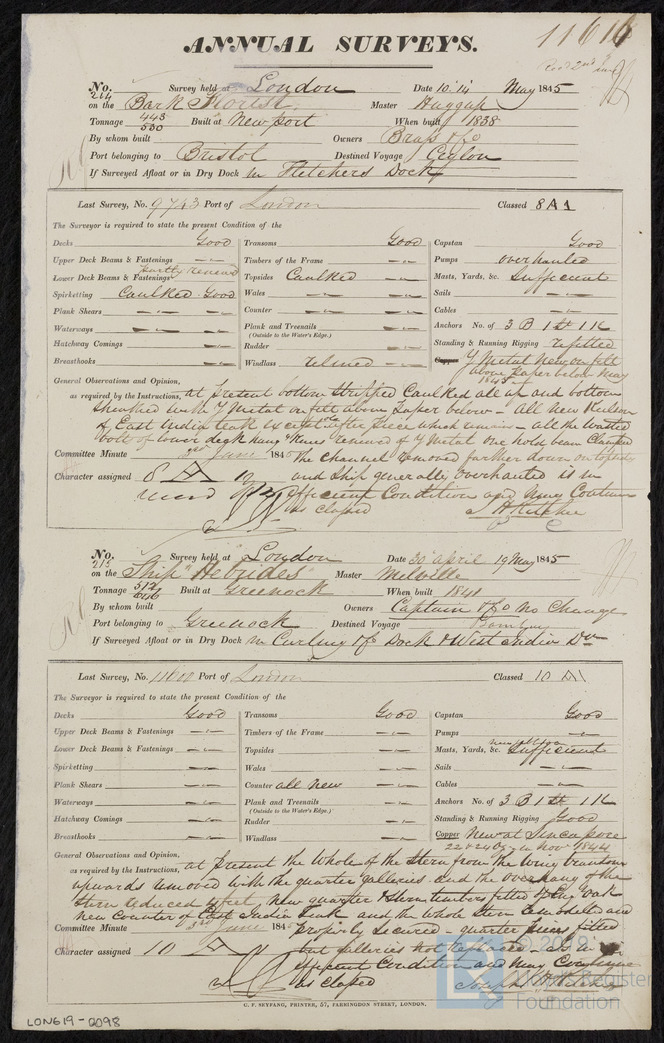 ANNUAL SURVEYS.
11616
No. 214 Survey held at London Date 10 · 14 May 1845
on the Bark Master
Tonnage 443 Built at Newport When built 1838
By whom built Owners
Port belonging to Bristol Destined Voyage Ceylon
If Surveyed Afloat or in Dry Dock in Fletchers Dock
Last Survey, No. 9743 Port of London Classed 8 A 1
The Surveyor is required to state the present Condition of the
Decks Good Transoms Good Capstan Good
Upper Deck Beams & Fastenings Timbers of the Frame Pumps overhauled
Lower Deck Beams & Fastenings partly renewed Topsides Caulked Masts, Yards, &c. Sufficient
Spirketting Caulked Good Wales Sails
Plank Shears Counter Cables
Waterways Plank and Treenails Anchors No. of 3 B 1 St 1 K
(Outside to the Water's Edge.)
Hatchway Comings Rudder Standing & Running Rigging refitted
Breasthooks Windlass Copper Y Metal New on felt
above Zaper below May
1845
General Observations and Opinion,
as required by the Instructions, at present bottom Stripped Caulked all up and bottom
Sheathed with Y Metal on felt above below — all New
of East India teak except after piece which remains — all the wasted
bolts of lower deck hang Knees renewed of Y Metal one hold beam
Committee Minute 3rd June 1845 The channels removed farther down on topsides
Character assigned 8 A 1 and Ship generally overhauled is in
efficient Condition and may Continue
as Classed
No. 215 Survey held at London Date 30 April 19 May 1845
on the Ship "Hebrides" Master Melville
Tonnage 512 Built at Greenock When built 1841
By whom built Owners Captain & Co No Change
Port belonging to Greenock Destined Voyage Bombay
If Surveyed Afloat or in Dry Dock in Curling & Co Dock & West India Do
Last Survey, No. 11600 Port of London Classed 10 A 1
The Surveyor is required to state the present Condition of the
Decks Good Transoms Good Capstan Good
Upper Deck Beams & Fastenings Timbers of the Frame Pumps
Lower Deck Beams & Fastenings Topsides Masts, Yards, &c. Sufficient
Spirketting Wales Sails
Plank Shears Counter all New Cables
Waterways Plank and Treenails Anchors No. of 3 B 1 St 1 K
(Outside to the Water's Edge.)
Hatchway Comings Rudder Standing & Running Rigging Good
Breasthooks Windlass Copper New at Sincapore
22 & 24 Oz in Nov 1844
General Observations and Opinion,
as required by the Instructions, at present the Whole of the Stern from the Wing transom
upwards removed with the quarter galleries and the overhang of the
Stern reduced feet. New quarter & Stern timbers fitted of Eng Oak
New Counter of East India Teak and the whole Stern remodeled and
Committee Minute 3rd June 1845 properly Secured — quarter pieces fitted
Character assigned 10 A 1 but galleries not replaced — is in
efficient Condition and may Continue
as Classed Joseph
C. F. SEYFANG, PRINTER, 57, FARRINGDON STREET, LONDON.
LON619-0098
© 2019
Lloyd's Register
Foundation